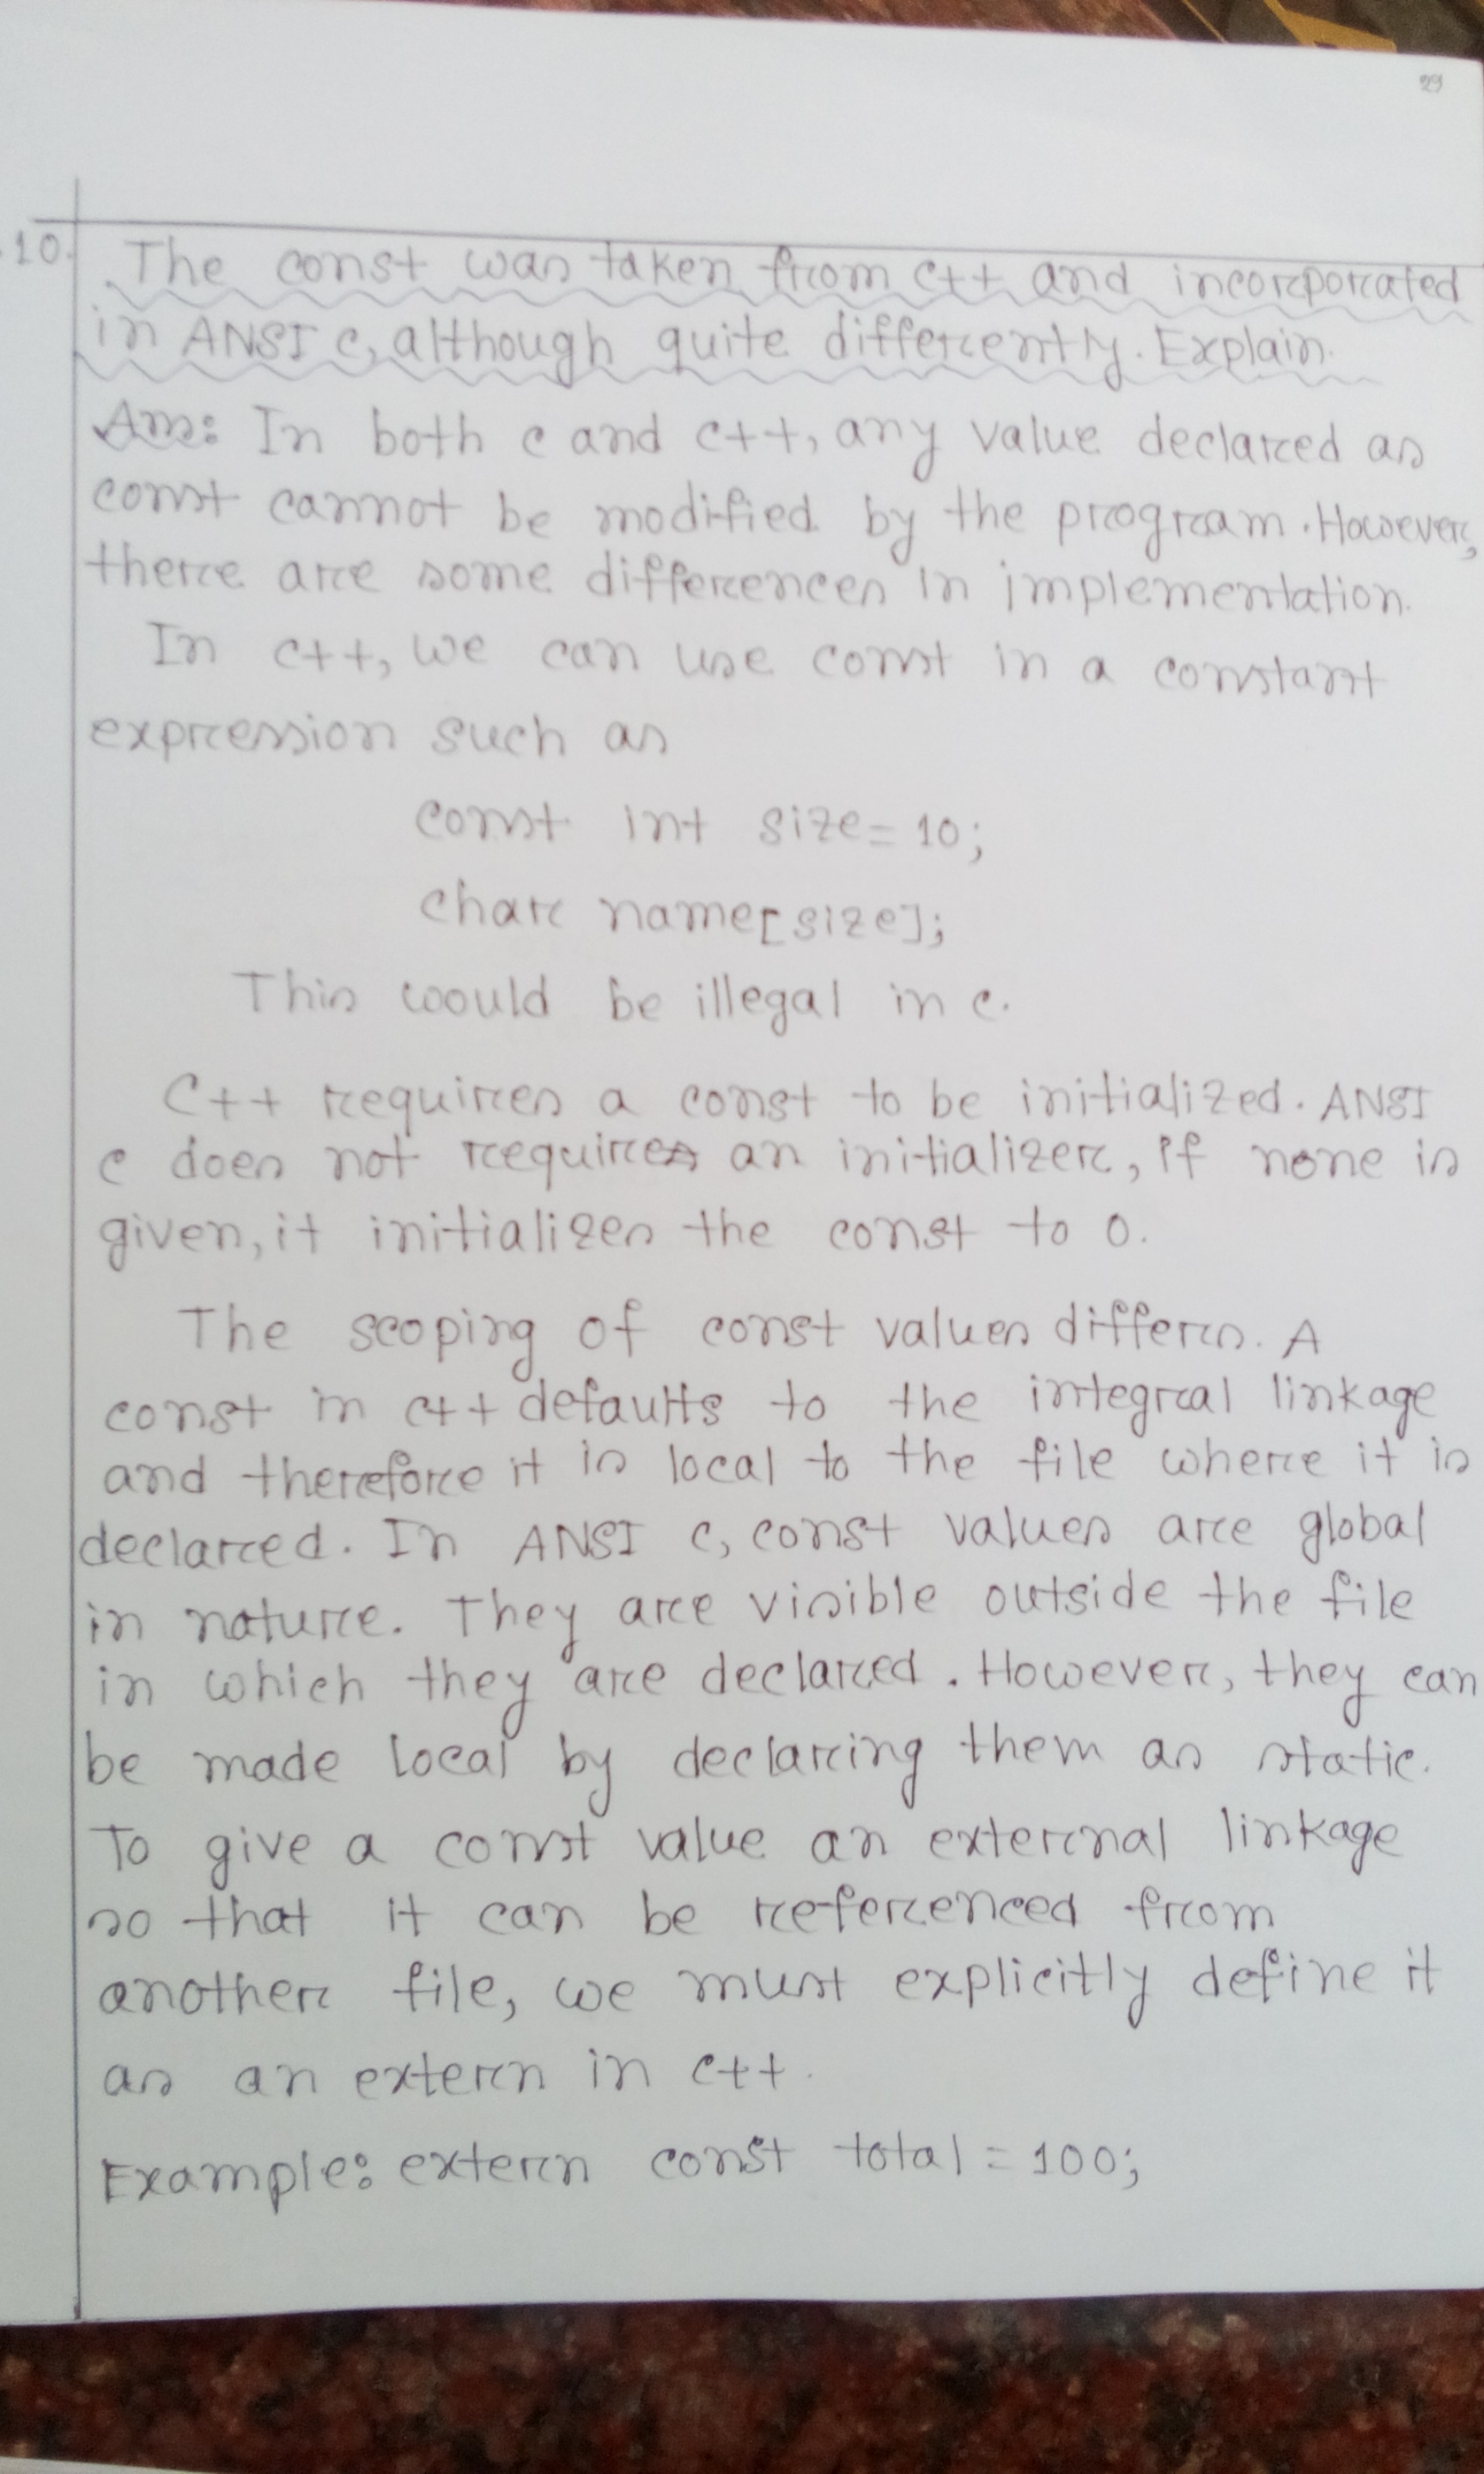 29
10. The const was taken from c++ and incorporated
in ANSI c, although quite differently. Explain.
Ans: In both c and c++, any value declared as
const cannot be modified by the program. However,
there are some differences in implementation.
In c++, we can use const in a constant
expression such as
const int size = 10;
char name[size];
This would be illegal in c.
C++ requires a const to be initialized. ANSI
c does not requires an initializer, if none is
given, it initializes the const to 0.
The scoping of const values differs. A
const in c++ defaults to the integral linkage
and therefore it is local to the file where it is
declared. In ANSI c, const values are global
in nature. They are visible outside the file
in which they are declared. However, they can
be made local by declaring them as static.
To give a const value an external linkage
so that it can be referenced from
another file, we must explicitly define it
as an extern in c++.
Example: extern const total = 100;